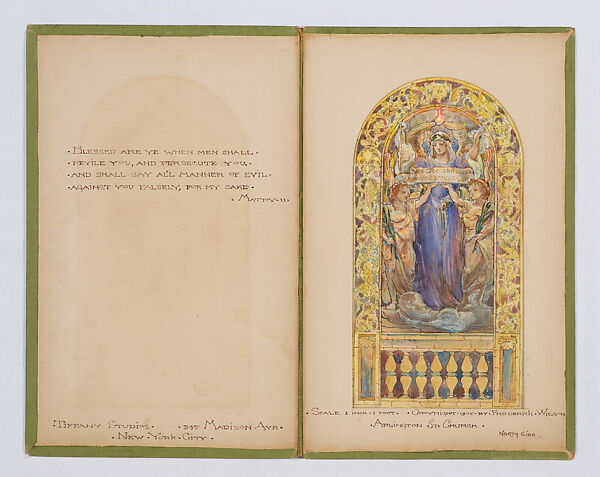 · BLESSED ARE YE WHEN MEN SHALL ·
· REVILE YOU, AND PERSECUTE YOU,
· AND SHALL SAY ALL MANNER OF EVIL ·
· AGAINST YOU FALSELY, FOR MY SAKE ·
· MATT · V · 11 ·
· TIFFANY STUDIOS · · 347 MADISON AVE ·
· NEW · YORK · CITY ·
· SCALE 1 INCH = 1 FOOT · · COPYRIGHT · BY · FREDERICK · WILSON
· ARLINGTON ST. CHURCH ·
NORTH SIDE .